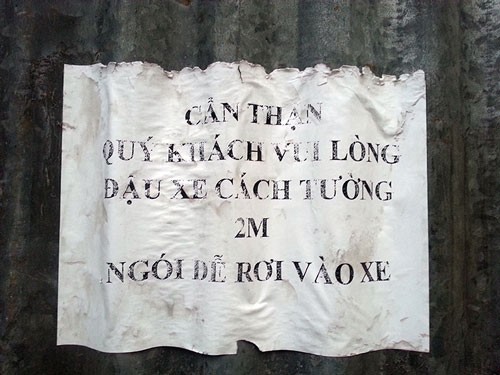 CẨN THẬN
QUÝ KHÁCH VUI LÒNG
ĐẬU XE CÁCH TƯỜNG
2M
NGÓI DỄ RƠI VÀO XE